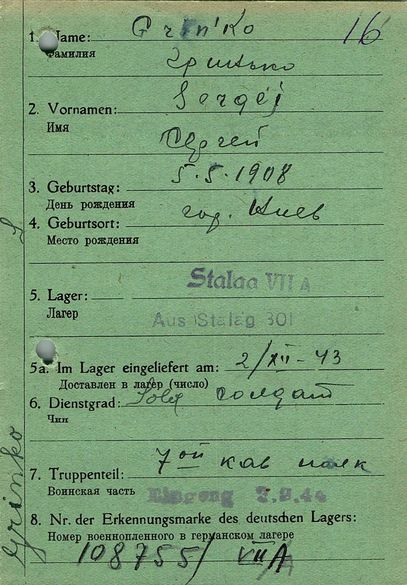 16
1. Name: Grin'Ko
Фамилия
Гринько
2. Vornamen: Sergej
Имя
Сергей
3. Geburtstag: 5.5.1908
День рождения
4. Geburtsort: гор. Киев
Место рождения
Stalag VII A
5. Lager:
Лагерь
Aus Stalag 301
5a. Im Lager eingeliefert am: 2/XII-43
Доставлен в лагер (число)
6. Dienstgrad: солдат
Чин
7ой кав полк
7. Truppenteil:
Воинская часть
Eingang 2.2.44
8. Nr. der Erkennungsmarke des deutschen Lagers:
Номер военнопленного в германском лагере
108755/ VIIA
Grinko